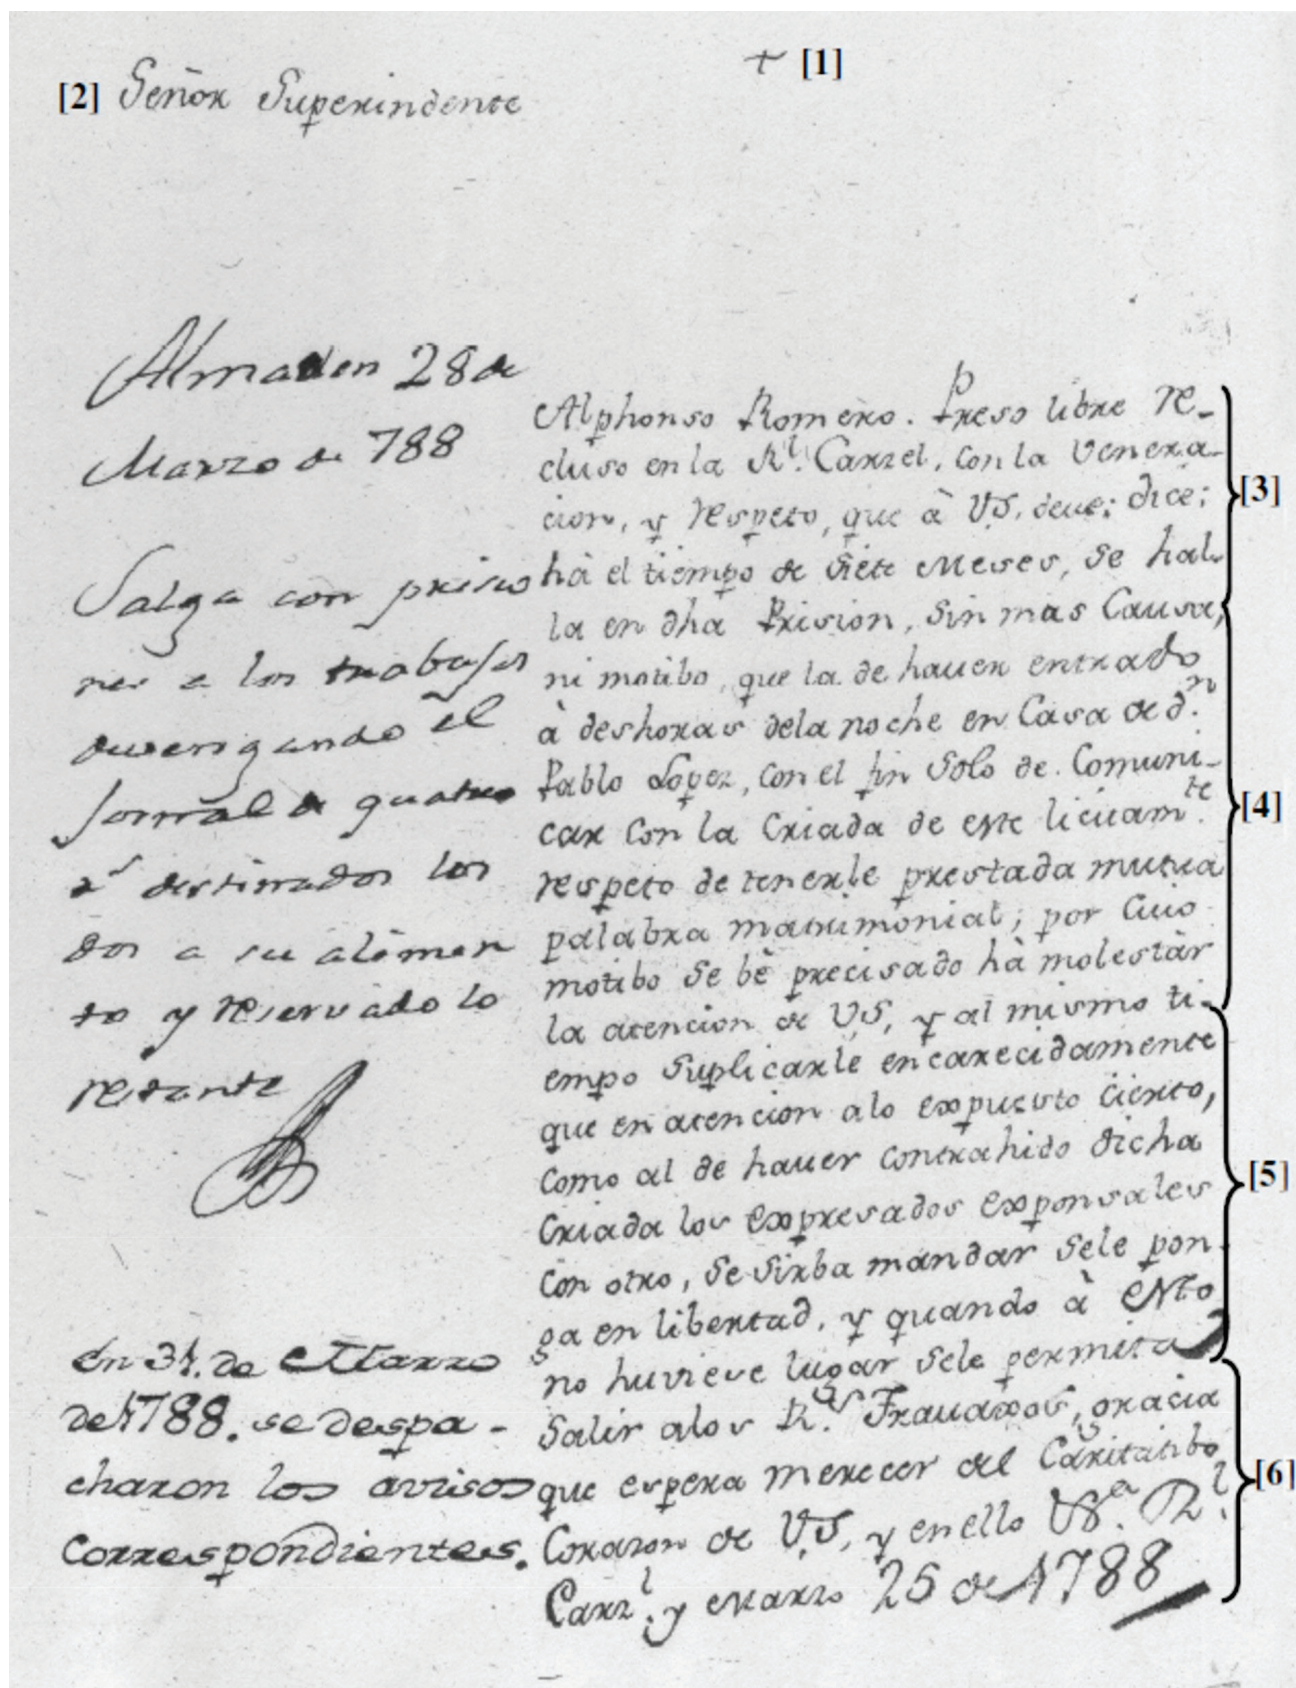 † [1]
[2] Señor Superindente
Almaden 28 de
Marzo de 788
Salga con prisio
nes a los trabajos
devengando el
Jornal de quatro
rs destinados los
dos a su alimen
to y reservado lo
restante
En 31. de Marzo
de 1788. se despa-
charon los avisos
correspondientes.
Alphonso Romero. Preso libre re-
cluso en la Rl. Carzel, con la venera-
cion, y respeto, que à VS, deve; dice;
[3]
hà el tiempo de siete Meses, se hal-
la en dha Prision, sin mas Causa,
ni motibo, que la de haver entrado
à deshoras dela noche en Casa de dn.
Pablo Lopez, con el fin solo de Comuni-
car con la Criada de este licitamte.
[4]
respeto de tenerle prestada mutua
palabra matrimonial; por Cuio
motibo se bè precisado hà molestàr
la atencion de VS, y al mismo ti-
empo suplicarle encarecidamente
que en atencion alo expuesto cierto,
como al de haver contrahido dicha
[5]
Criada los expresados exponsales
con otro, se sirba mandar sele pon-
ga en libertad, y quando à esto
no huviese lugar sele permita
salir alos Rs. Travaxos, gracia
que espera merecer del Caritatibo
[6]
Corazon de VS, y en ello Rl.
Carzl. y Marzo 25 de 1788